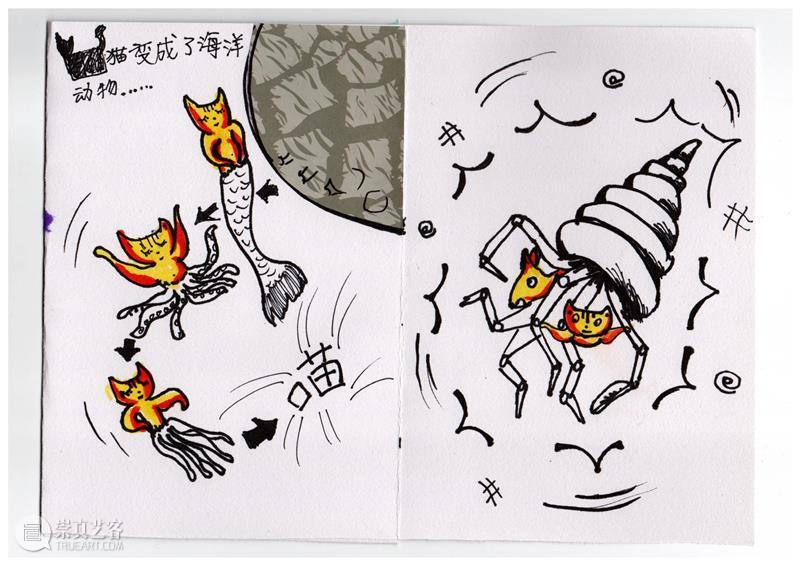 猫变成了海洋
动物……
喵
崇真艺客
TRUEART.COM